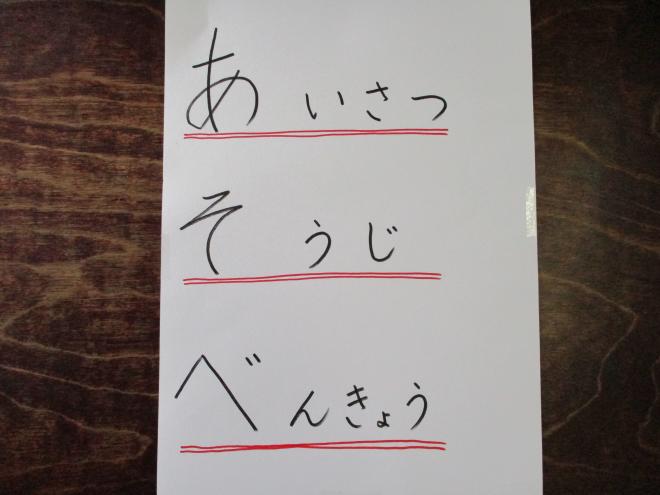 あいさつ
そうじ
べんきょう